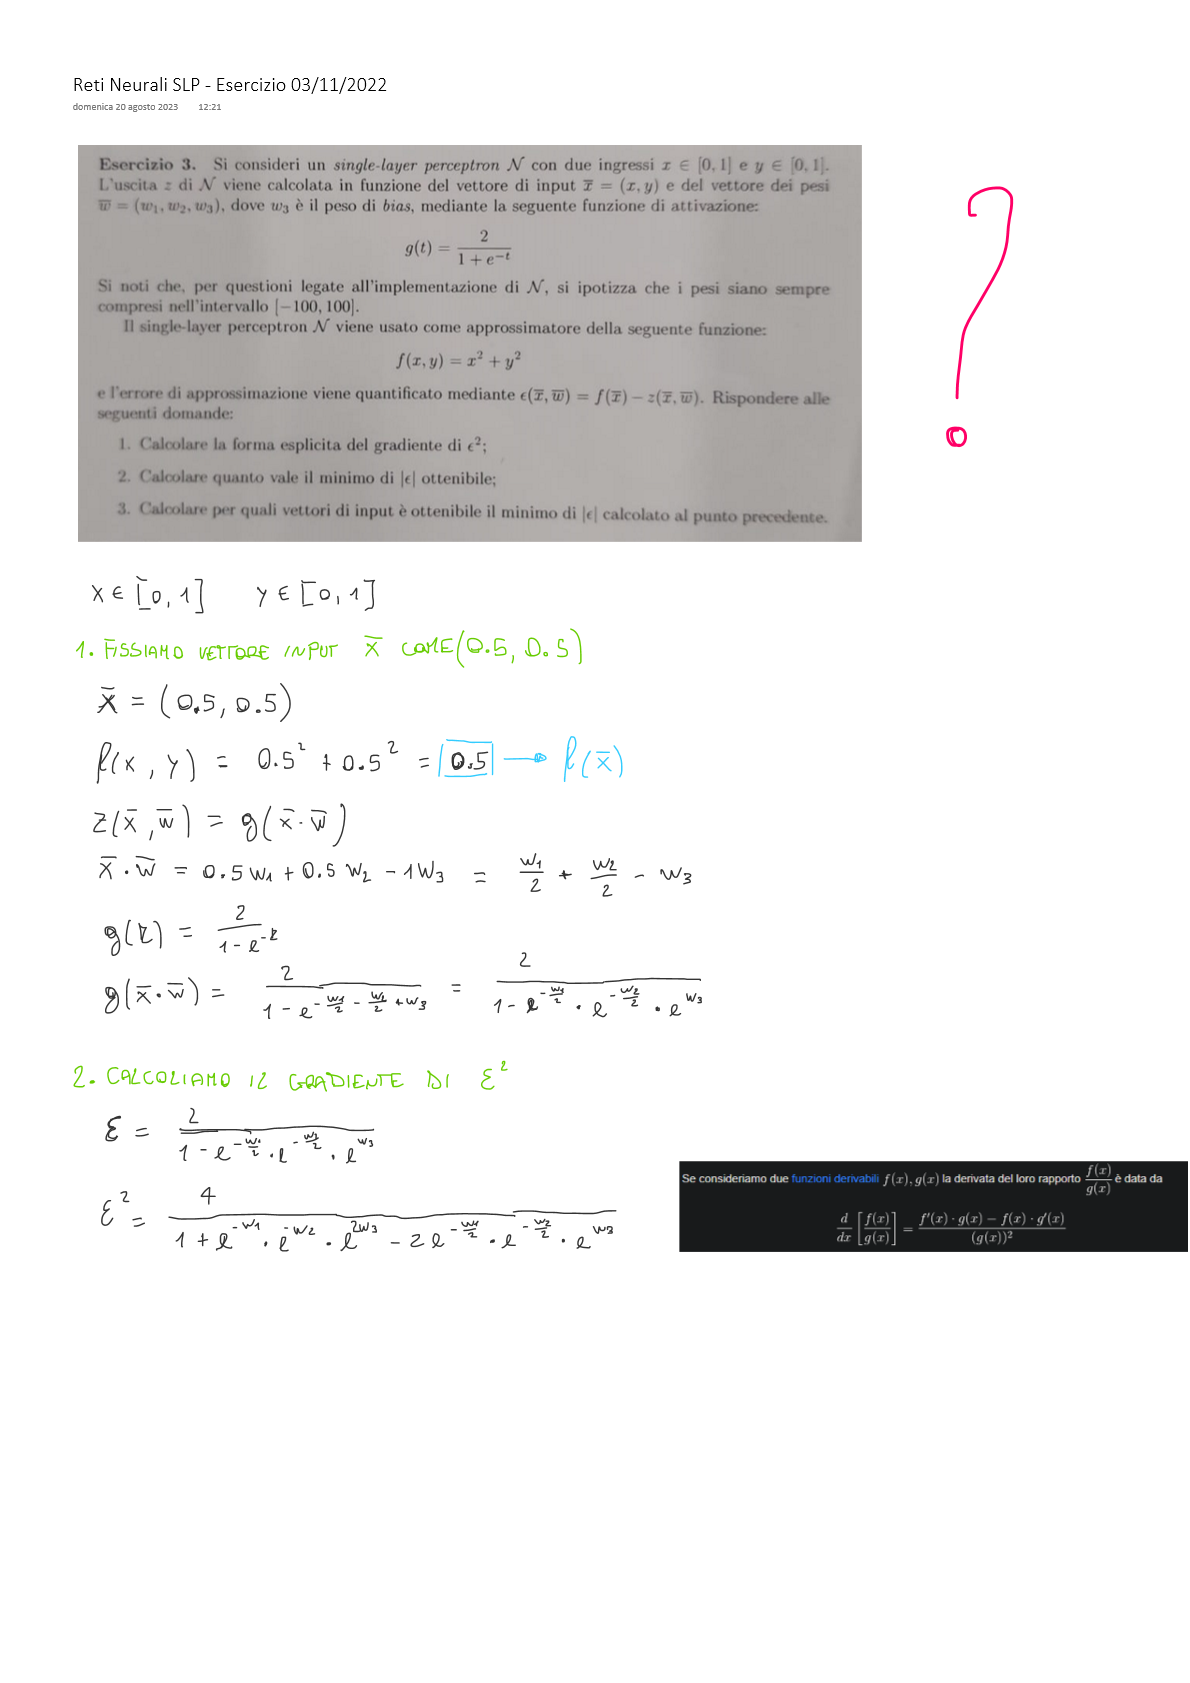 Reti Neurali SLP - Esercizio 03/11/2022
domenica 20 agosto 2023 12:21
Esercizio 3. Si consideri un single-layer perceptron 𝒩 con due ingressi x ∈ [0, 1] e y ∈ [0, 1].
L'uscita z di 𝒩 viene calcolata in funzione del vettore di input x̅ = (x, y) e del vettore dei pesi
w̅ = (w₁, w₂, w₃), dove w₃ è il peso di bias, mediante la seguente funzione di attivazione:
g(t) = 2 / (1 + e^{-t})
Si noti che, per questioni legate all'implementazione di 𝒩, si ipotizza che i pesi siano sempre
compresi nell'intervallo [−100, 100].
Il single-layer perceptron 𝒩 viene usato come approssimatore della seguente funzione:
f(x, y) = x² + y²
e l'errore di approssimazione viene quantificato mediante ϵ(x̅, w̅) = f(x̅) − z(x̅, w̅). Rispondere alle
seguenti domande:
1. Calcolare la forma esplicita del gradiente di ϵ²;
2. Calcolare quanto vale il minimo di |ϵ| ottenibile;
3. Calcolare per quali vettori di input è ottenibile il minimo di |ϵ| calcolato al punto precedente.
?
x ∈ [0, 1] y ∈ [0, 1]
1. FISSIAMO VETTORE INPUT x̅ COME (0.5, 0.5)
x̅ = (0.5, 0.5)
f(x, y) = 0.5² + 0.5² = 0.5 → f(x̅)
z(x̅, w̅) = g(x̅ · w̅)
x̅ · w̅ = 0.5 w₁ + 0.5 w₂ − 1 w₃ = w₁/2 + w₂/2 − w₃
g(z) = 2 / (1 − e^{-z})
g(x̅ · w̅) = 2 / (1 − e^{-w₁/2 − w₂/2 + w₃}) = 2 / (1 − e^{-w₁/2} · e^{-w₂/2} · e^{w₃})
2. CALCOLIAMO IL GRADIENTE DI ε²
ε = 2 / (1 − e^{-w₁/2} · e^{-w₂/2} · e^{w₃})
ε² = 4 / (1 + e^{-w₁} · e^{-w₂} · e^{2w₃} − 2 e^{-w₁/2} · e^{-w₂/2} · e^{w₃})
Se consideriamo due funzioni derivabili f(x), g(x) la derivata del loro rapporto f(x)/g(x) è data da
d/dx [f(x)/g(x)] = (f′(x) · g(x) − f(x) · g′(x)) / (g(x))²